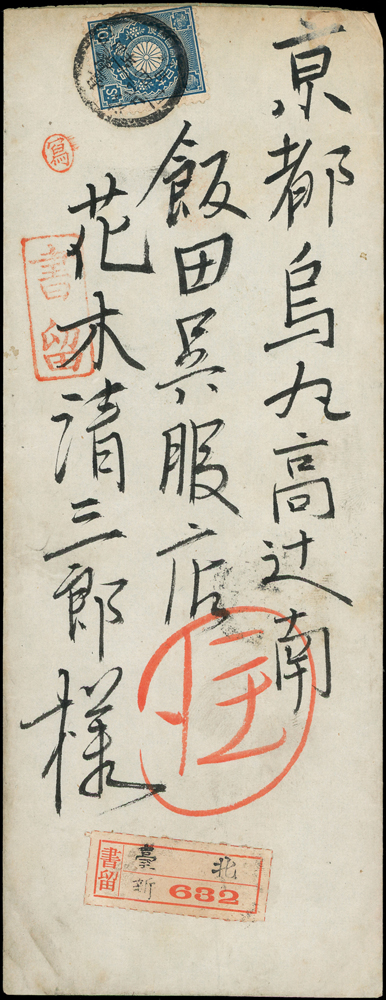 京都烏丸高辻南
飯田呉服店
花木清三郎様
書留
書留
臺北
新
632